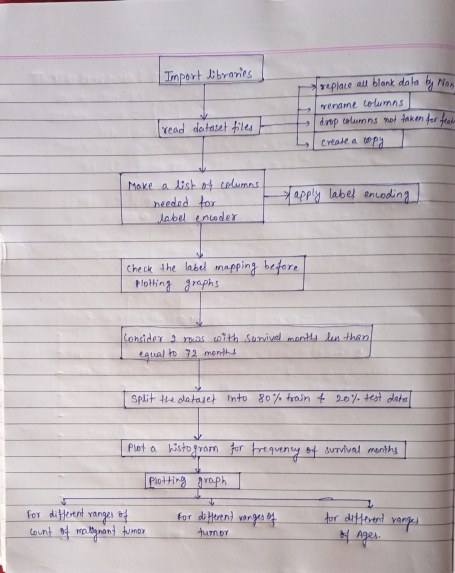 Import libraries
replace all blank data by Nan
rename columns
read dataset files
drop columns not taken for feat
create a copy
Make a list of columns
needed for
label encoder
apply label encoding
Check the label mapping before
plotting graphs
Consider rows with survival months less than
equal to 72 months
Split the dataset into 80% train & 20% test data
Plot a histogram for frequency of survival months
Plotting graph
For different ranges of
count of malignant tumor
For different ranges of
tumor
for different ranges
of Ages.